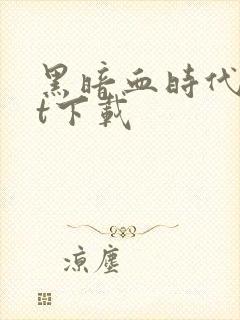 黑暗血時代
t下載
涼塵